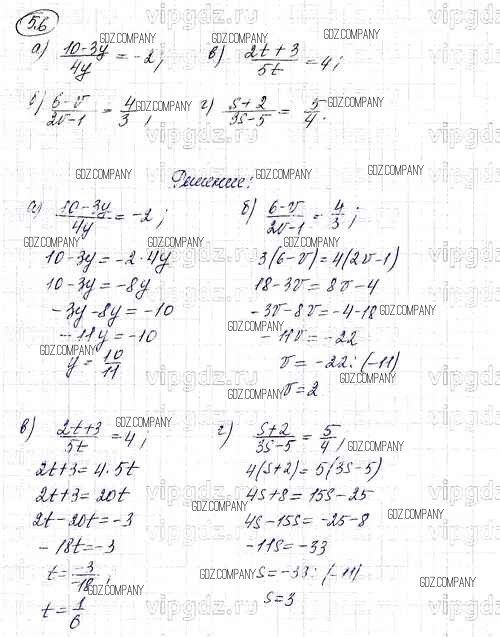 5.6
а) (10-3y)/(4y) = -2; в) (2t+3)/(5t) = 4;
б) (6-v)/(2v-1) = 4/3; г) (s+2)/(3s-5) = 5/4.
Решение:
а) (10-3y)/(4y) = -2;
10-3y = -2·4y
10-3y = -8y
-3y-8y = -10
-11y = -10
y = 10/11
б) (6-v)/(2v-1) = 4/3;
3(6-v) = 4(2v-1)
18-3v = 8v-4
-3v-8v = -4-18
-11v = -22
v = -22:(-11)
v = 2
в) (2t+3)/(5t) = 4;
2t+3 = 4·5t
2t+3 = 20t
2t-20t = -3
-18t = -3
t = -3/-18;
t = 1/6
г) (s+2)/(3s-5) = 5/4;
4(s+2) = 5(3s-5)
4s+8 = 15s-25
4s-15s = -25-8
-11s = -33
s = -33:(-11)
s = 3
GDZ.COMPANY
vipgdz.ru